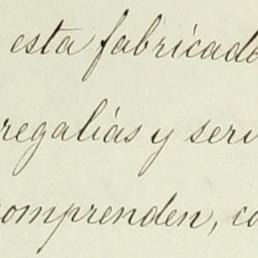 esta fabricado
regalías y serv
comprenden, co